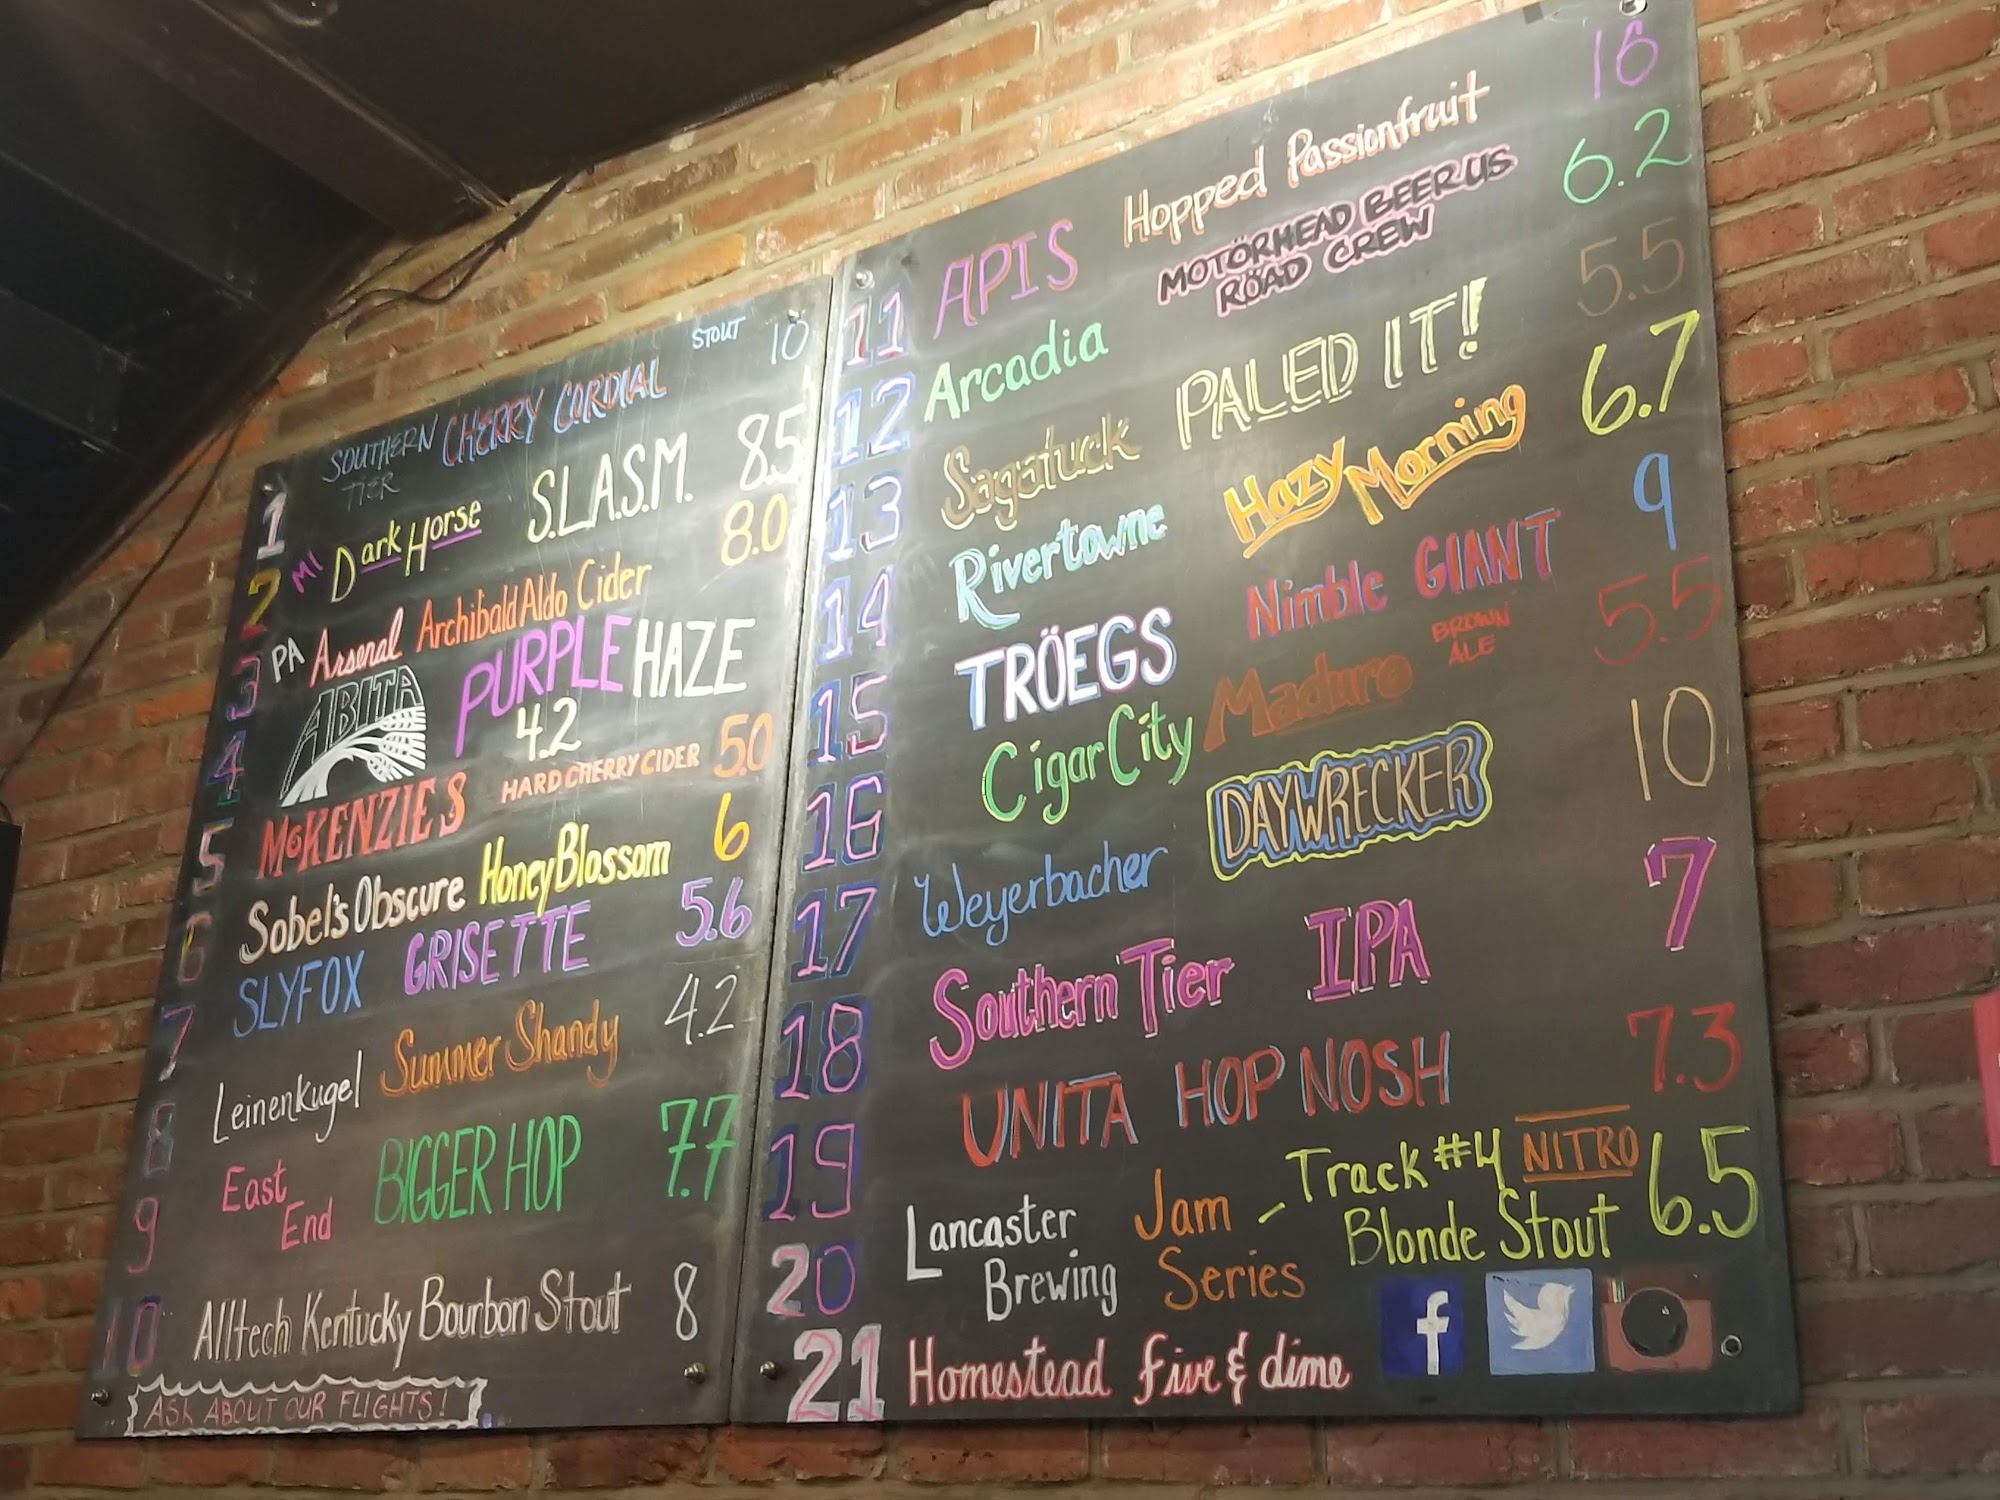 1 SOUTHERN TIER CHERRY CORDIAL STOUT 10
2 MI Dark Horse S.L.A.S.M. 8.5
3 PA Arsenal Archibald Aldo Cider 8.0
4 ABITA PURPLE HAZE
4.2
5 McKENZIE'S HARD CHERRY CIDER 5.0
6 Sobel's Obscure Honey Blossom 6
7 SLYFOX GRISETTE 5.6
8 Leinenkugel Summer Shandy 4.2
9 East End BIGGER HOP 7.7
10 Alltech Kentucky Bourbon Stout 8
ASK ABOUT OUR FLIGHTS!
11 APIS Hopped Passionfruit 16
12 Arcadia MOTÖRHEAD BEERUS 6.2
RÖAD CREW
13 Sagatuck PALED IT! 5.5
14 Rivertowne Hazy Morning 6.7
15 TRÖEGS Nimble GIANT 9
16 Cigar City Maduro BROWN ALE 5.5
17 Weyerbacher DAYWRECKER 10
18 Southern Tier IPA 7
19 UNITA HOP NOSH 7.3
20 Lancaster Jam - Track #4 NITRO 6.5
Brewing Series Blonde Stout
21 Homestead five & dime
f